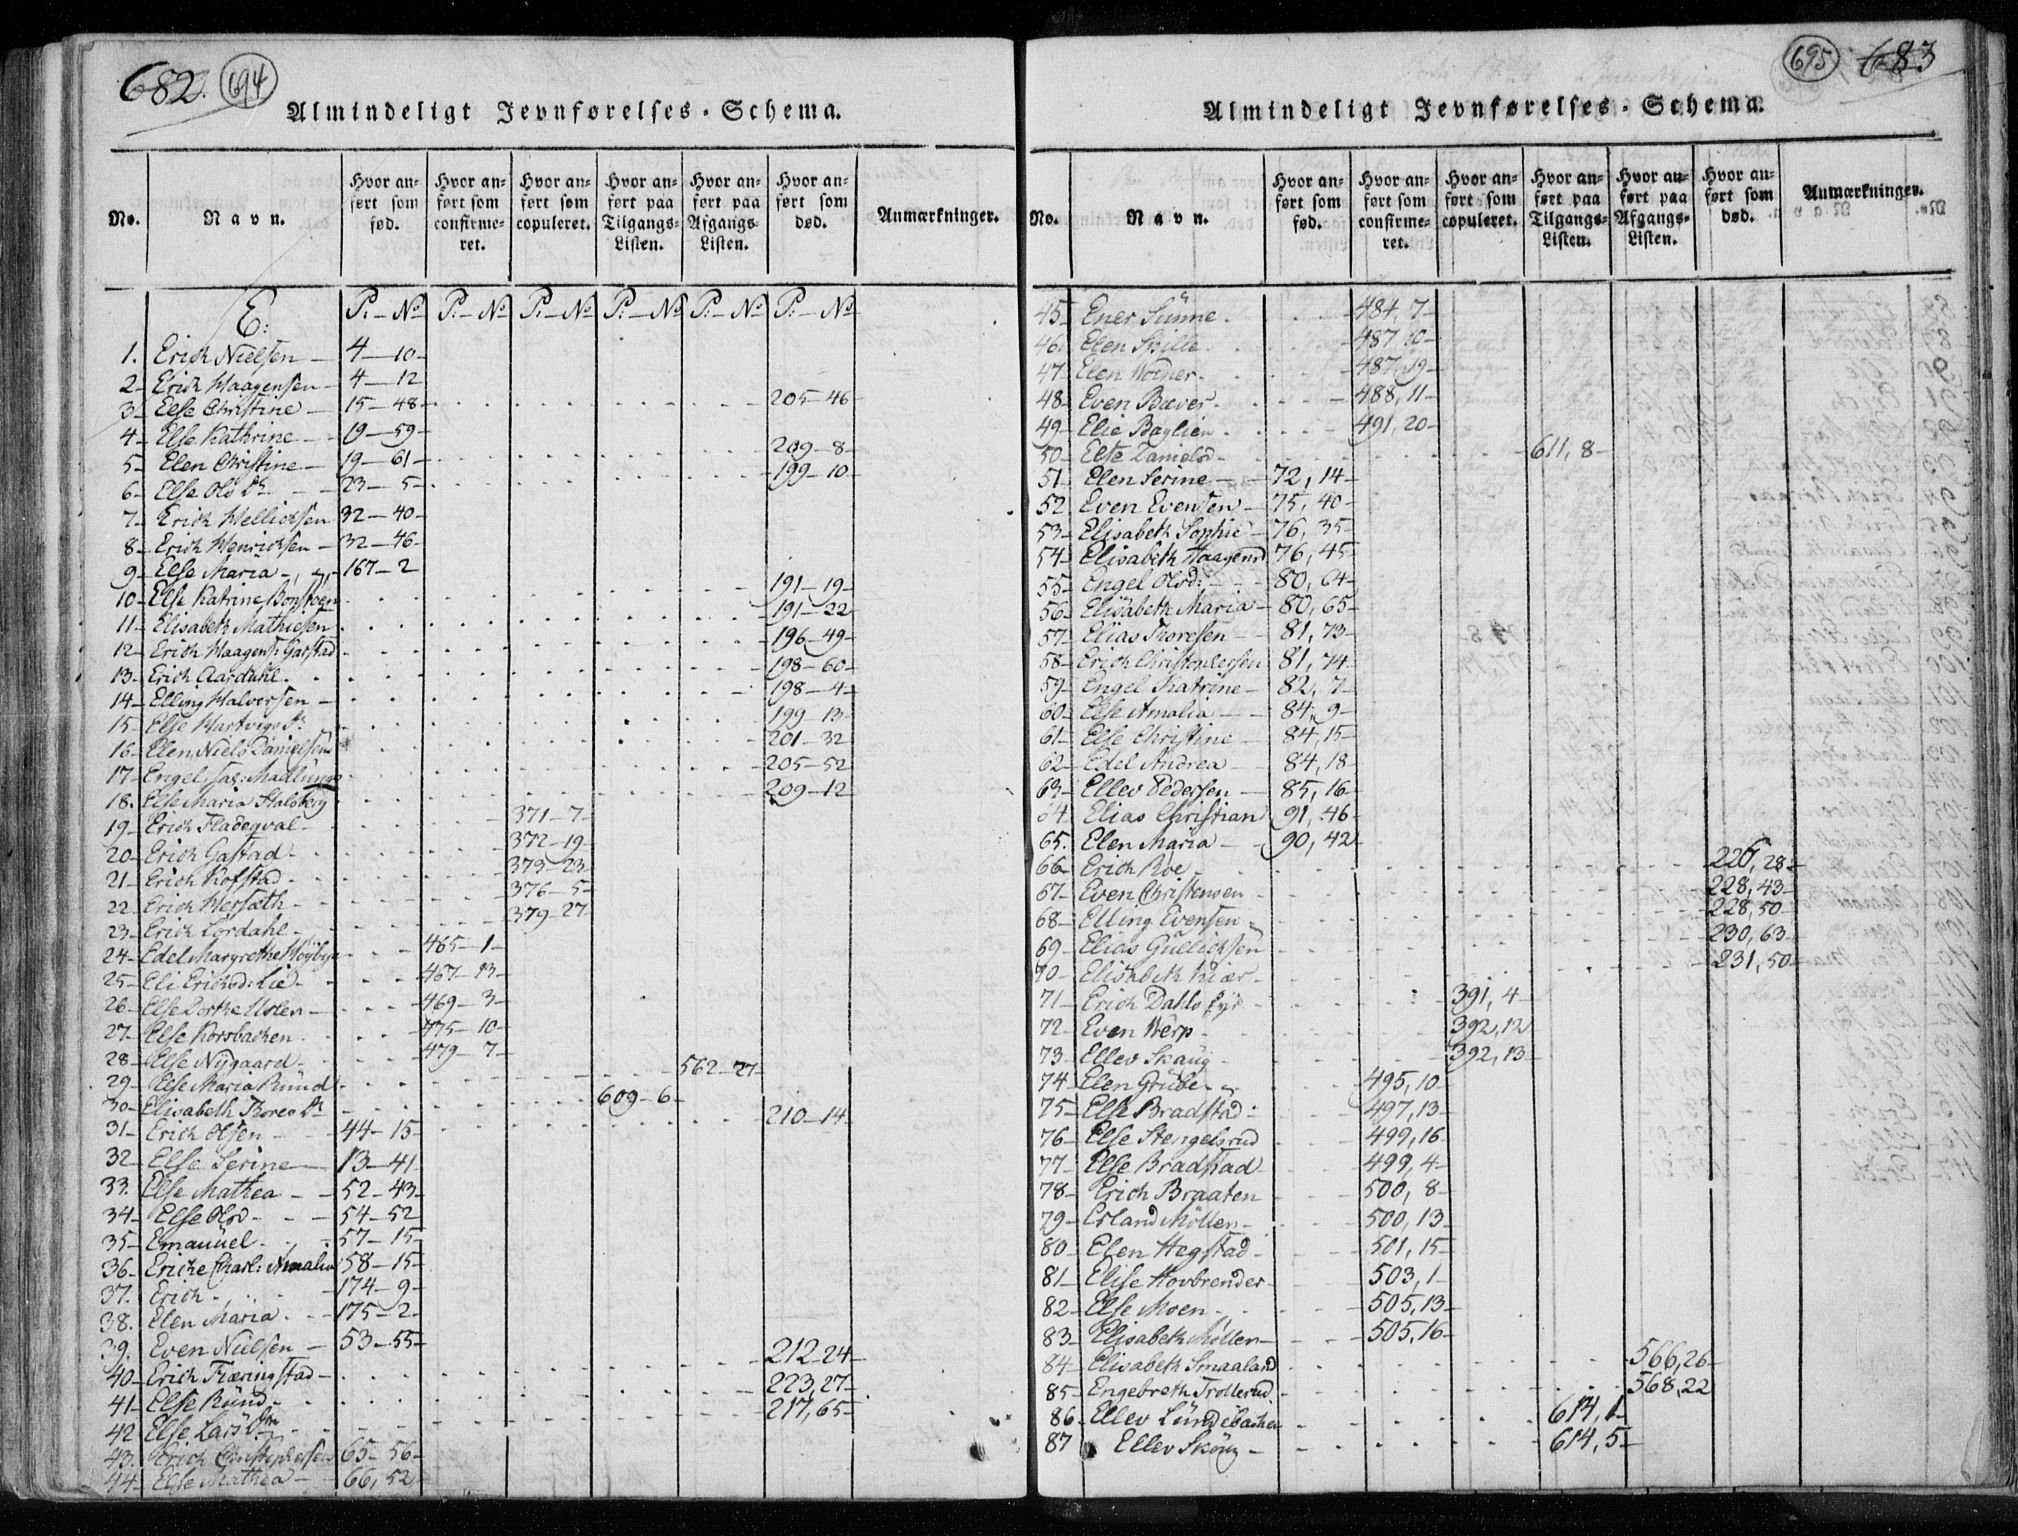 682. 694
Almindeligt Jevnførelses-Schema.
No. Navn. Hvor anført som fød. Hvor anført som confirmeret. Hvor anført som copuleret. Hvor anført paa Tilgangs-Listen. Hvor anført paa Afgangs-Listen. Hvor anført som død. Anmærkninger.
E: P.–No P.–No P.–No P.–No P.–No P.–No
1. Erich Nielsen – 4–10–
2– Erich Haagensen – 4–12
3– Else Christine – 15–48– 205–46
4– Else Kathrine – 19–59–
5– Elen Christine – 19–61– 209–8–
6– Else Ols Dr. – 23–5– 199–10–
7– Erich Hellichsen 32–40–
8– Erich Henrichsen – 32–46–
9– Else Maria – 167–2
10– Else Katrine 191–19–
11– Elisabeth Mathiesen 191–22
12– Erich Haagens: Garstad 196–49–
13– Erich Aardahl 198–60–
14– Elling Halvorsen – 198–4–
15– Else Hartvigs Dr. 199–13–
16– Elen Niels Danielsen 201–32
17– Engel 205–52
18. Else Maria Stalsberg 209–12
19– Erich Fladeqval – 371–7–
20– Erich Gastad – 372–19–
21– Erich Kofstad – 373–23
22– Erich Hersæth – 376–5–
23– Erich Lordahl – 379–27
24– Edel Margrethe Höybye 465–1–
25– Eli Erichsd: Lie – 467–13–
26– Else Dorthe 469–3–
27– Else Korsbachen 475–10–
28– Else Nÿgaard – 479–7–
29– Else Maria Rund 562–27–
30– Elisabeth Thores Dr 609–6–
31– Erich Olsen – 44–15– 210–14–
32– Else Serine – 13–41–
33. Else Mathea – 52–43–
34– Else Olsd – 54–52
35– Emanuel – 57–15–
36– Eriche Charl: Amalia 58–15–
37. Erich – 174–9–
38. Elen Maria – 175–2–
39. Even Nielsen – 53–55–
40– Erich Thæringstad – 212–24–
41– Else Rund – 223,27–
42 Else Lars 217,65–
43. Erich Christophersen 65–56–
44– Else Mathea – 66,52
695 683
Almindeligt Jevnførelses-Schema.
No. Navn. Hvor anført som fød. Hvor anført som confirmeret. Hvor anført som copuleret. Hvor anført paa Tilgangs-Listen. Hvor anført paa Afgangs-Listen. Hvor anført som død. Anmærkninger.
45– Ener Sünne – 484,7–
46– Elen 487,10–
47– Elen 487,19–
48– Even Bæver – 488,11–
49– Elie Baglien – 491,20–
50– Else Danielsd – 611,8–
51– Elen Serine – 72,14–
52 Even Evensen – 75,40–
53– Elisabeth Sophie – 76,35–
54– Elisabeth Haagensd 76,45–
55– Engel Olsd: – 80,64–
56– Elisabeth Maria – 80,65–
57– Elias Thoresen – 81,73–
58– Erich Christophersen 81,74–
59– Engel Katrine – 82,7–
60– Else Amalia – 84,9–
61– Else Christine – 84,15–
62– Edel Andrea – 84,18–
63– Ellev Pedersen – 85,16–
64. Elias Christian 91,46–
65. Elen Maria – 90,42–
66– Erich Roe – 226,28–
67– Even Christensen – 228,43–
68– Elling Evensen – 228,50–
69– Elias Gulichsen 230,63–
70– Elisabeth Kiær – 231,50–
71– Erich Dahls 391,4–
72– Even Werp – 392,12
73– Ellev Skaug – 392,13–
74– Elen Grube – 495,10–
75– Else Bradstad: 497,13–
76– Else Stengelsrud 499,16–
77– Else Bradstad – 499,4–
78– Erich Braaten 500,8–
79– Erland Möllen – 500,13–
80– Elen Hegstad – 501,15–
81– Elise Hovbrender 503,1–
82– Else Moen – 505,13–
83– Elisabeth Möllen – 505,16–
84– Elisabeth Smaaland 566,26–
85– Engebreth Trollerud – 568,22
86– Ellev Lundebachen 614,1–
87 Ellev Skönz – 614,5–